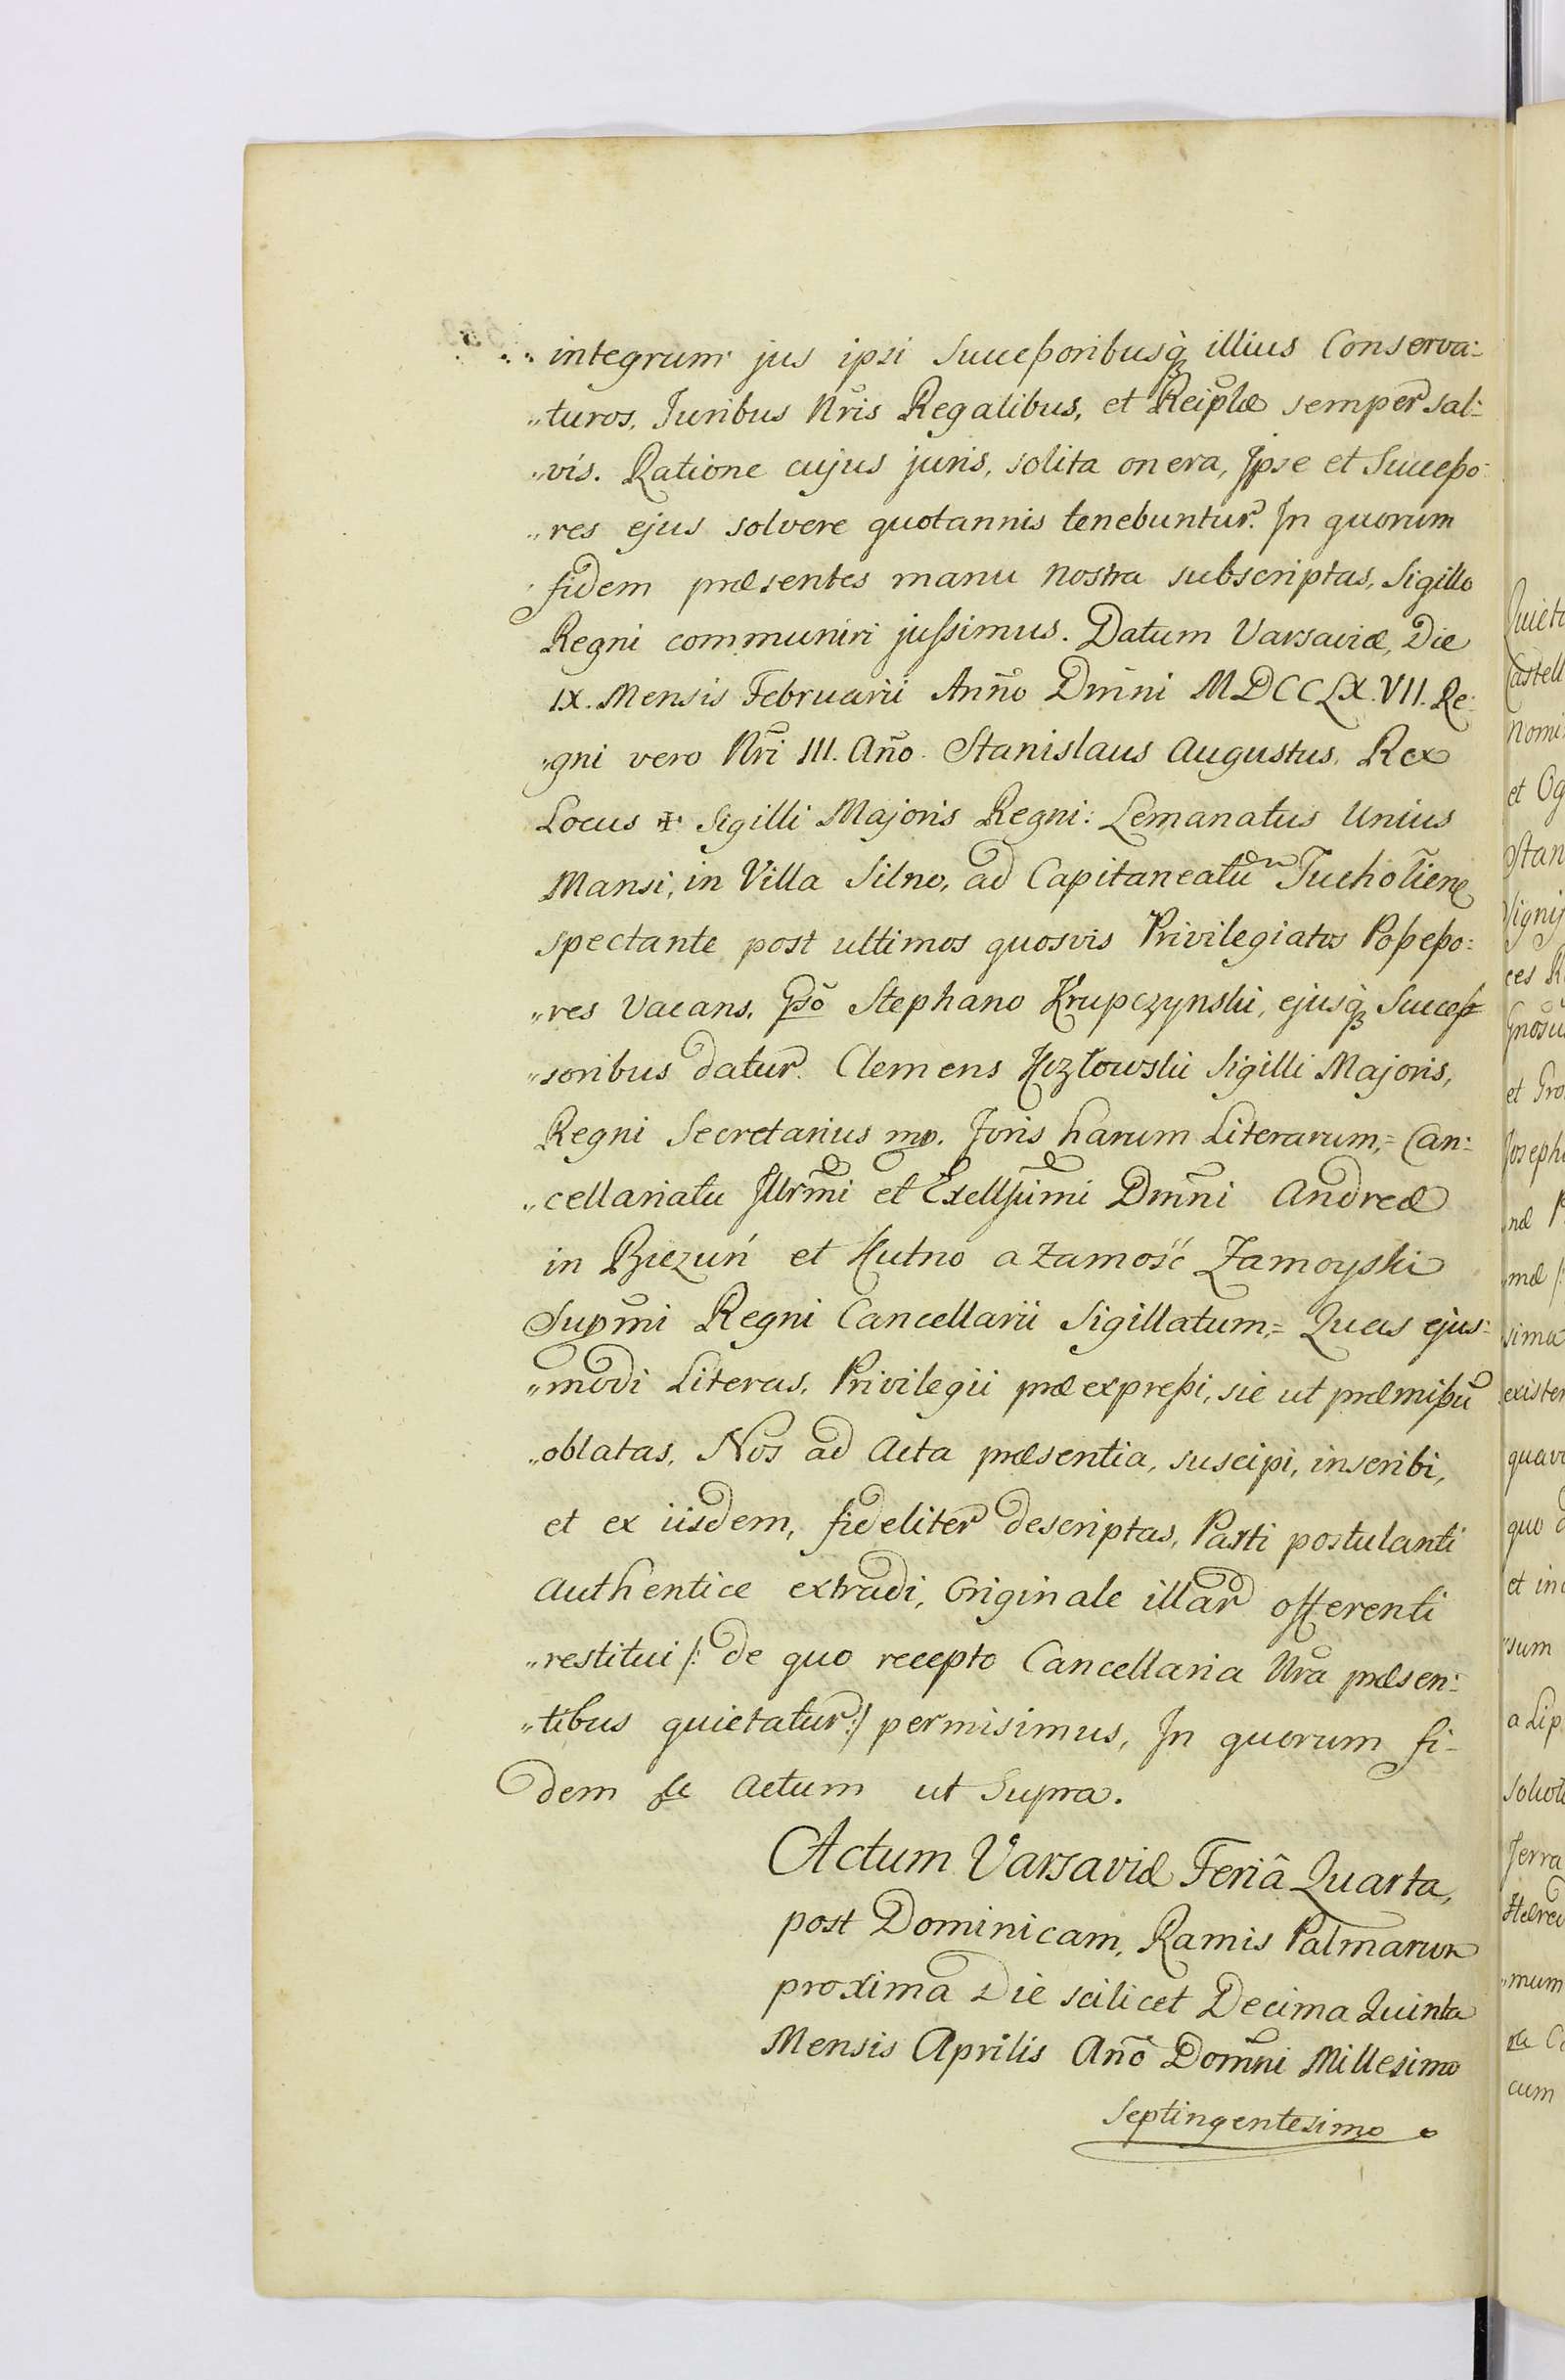 integrum jus ipsi Succeßoribusq̃ illius Conserva:
„turos, Juribus Nr̃is Regalibus, et Reipl̃æ semper sal:
„vis. Ratione cujus juris, solita onera, Ipse et Succeßo:
„res ejus solvere quotannis tenebuntur. In quorum
fidem præsentes manu nostra subscriptas, Sigillo
Regni communiri jußimus. Datum Varsaviæ, Die
IX. Mensis Februarii Anno Dm̃ni MDCCLX.VII. Re:
„gni vero Nr̃i III. Ano. Stanislaus Augustus, Rex
Locus ✠ Sigilli Majoris Regni: Lemanatus Unius
Mansi, in Villa Silno, ad Capitaneatũ Tucholien̄
spectante post ultimos quosvis Privilegiatos Poßeßo:
„res Vacans, Gsõ Stephano Krupczynski, ejusq̃ Succeß
„soribus datur. Clemens Kozłowski Sigilli Majoris,
Regni Secretarius mp. Foris harum Literarum,= Can:
„cellariatu Illr̃mi et Exellsũmi Dm̃ni Andreæ
in Biezuń et Kutno a Zamość Zamoyski
Supm̃i Regni Cancellarii Sigillatum,= Quas ejus:
„modi Literas, Privilegii præexpreßi, sic ut præmißũ
„oblatas, Nos ad Acta præsentia, suscipi, inscribi,
et ex iisdem, fideliter descriptas, Parti postulanti
Authentice extradi, Originale illar̃ offerenti
„restitui /: de quo recepto Cancellaria Nr̃a præsen:
„tibus quietatur:/ permisimus, In quorum fi-
dem &c Actum ut Supra.
Actum Varsaviæ Feriâ Quarta,
post Dominicam, Ramis Palmarum
proxima Die scilicet Decima Quinta
Mensis Aprilis Anõ Dom̃ni Millesimo
Septingentesimo
Castell
et Og
Stan
ces R
Gnosũ
et Gro
Joseph
„næ P
„mæ /:
sima
exister
quo d
et in
„sum
a Lip
Terra
„mum
cum